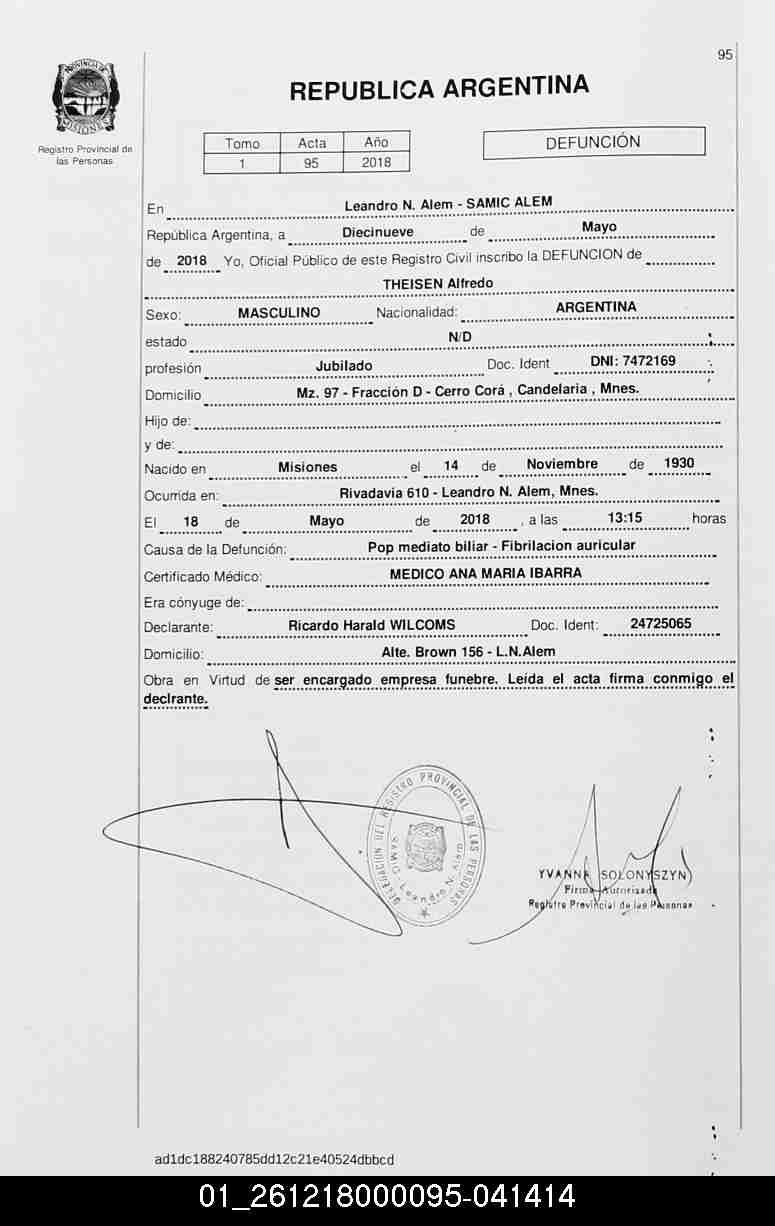 95
PROVINCIA DE
MISIONES
Registro Provincial de
las Personas
REPUBLICA ARGENTINA
Tomo Acta Año
1 95 2018
DEFUNCIÓN
En Leandro N. Alem - SAMIC ALEM
República Argentina, a Diecinueve de Mayo
de 2018 Yo, Oficial Público de este Registro Civil inscribo la DEFUNCION de
THEISEN Alfredo
Sexo: MASCULINO Nacionalidad: ARGENTINA
estado N/D
profesión Jubilado Doc. Ident DNI: 7472169
Domicilio Mz. 97 - Fracción D - Cerro Corá , Candelaria , Mnes.
Hijo de:
y de:
Nacido en Misiones el 14 de Noviembre de 1930
Ocurrida en: Rivadavia 610 - Leandro N. Alem, Mnes.
El 18 de Mayo de 2018 , a las 13:15 horas
Causa de la Defunción: Pop mediato biliar - Fibrilacion auricular
Certificado Médico: MEDICO ANA MARIA IBARRA
Era cónyuge de:
Declarante: Ricardo Harald WILCOMS Doc. Ident: 24725065
Domicilio: Alte. Brown 156 - L.N.Alem
Obra en Virtud de ser encargado empresa funebre. Leída el acta firma conmigo el
declrante.
DELEGACION DEL REGISTRO PROVINCIAL DE LAS PERSONAS
SAMIC - Leandro N. Alem
YVANNA SOLONYSZYN
Firma Autorizada
Registro Provincial de las Personas
ad1dc188240785dd12c21e40524dbbcd
01_261218000095-041414